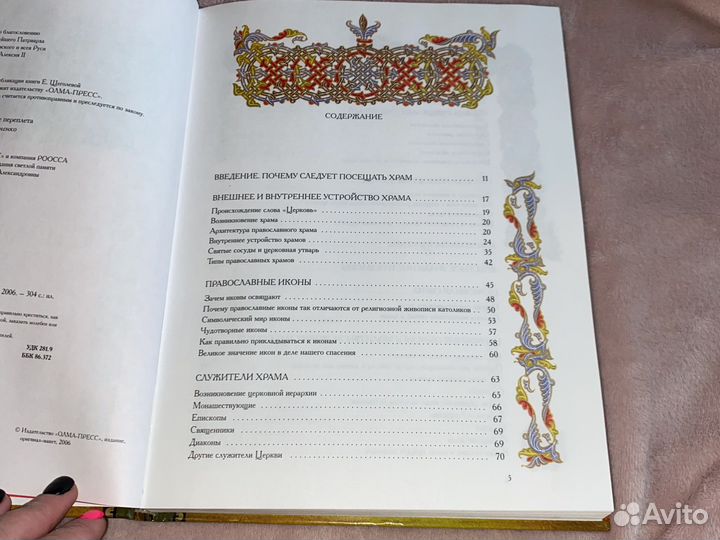 о благословению
ейшего Патриарха
вского и всея Руси
Алексия II
бликации книги Е. Щеголевой
жит издательству «ОЛМА-ПРЕСС».
считается противоправным и преследуется по закону.
е переплета
и компания РООССА
дания светлой памяти
Александровны
2006. — 304 с.: ил.
равильно креститься, как
ой, заказать молебен или
телей.
УДК 281.9
ББК 86.372
© Издательство «ОЛМА-ПРЕСС», издание,
оригинал-макет, 2006
СОДЕРЖАНИЕ
ВВЕДЕНИЕ. ПОЧЕМУ СЛЕДУЕТ ПОСЕЩАТЬ ХРАМ 11
ВНЕШНЕЕ И ВНУТРЕННЕЕ УСТРОЙСТВО ХРАМА 17
Происхождение слова «Церковь» 19
Возникновение храма 20
Архитектура православного храма 20
Внутреннее устройство храмов 24
Святые сосуды и церковная утварь 35
Типы православных храмов 42
ПРАВОСЛАВНЫЕ ИКОНЫ 45
Зачем иконы освящают 48
Почему православные иконы так отличаются от религиозной живописи католиков 50
Символический мир иконы 53
Чудотворные иконы 57
Как правильно прикладываться к иконам 58
Великое значение икон в деле нашего спасения 60
СЛУЖИТЕЛИ ХРАМА 63
Возникновение церковной иерархии 65
Монашествующие 66
Епископы 67
Священники 69
Диаконы 69
Другие служители Церкви 70
5
Avito